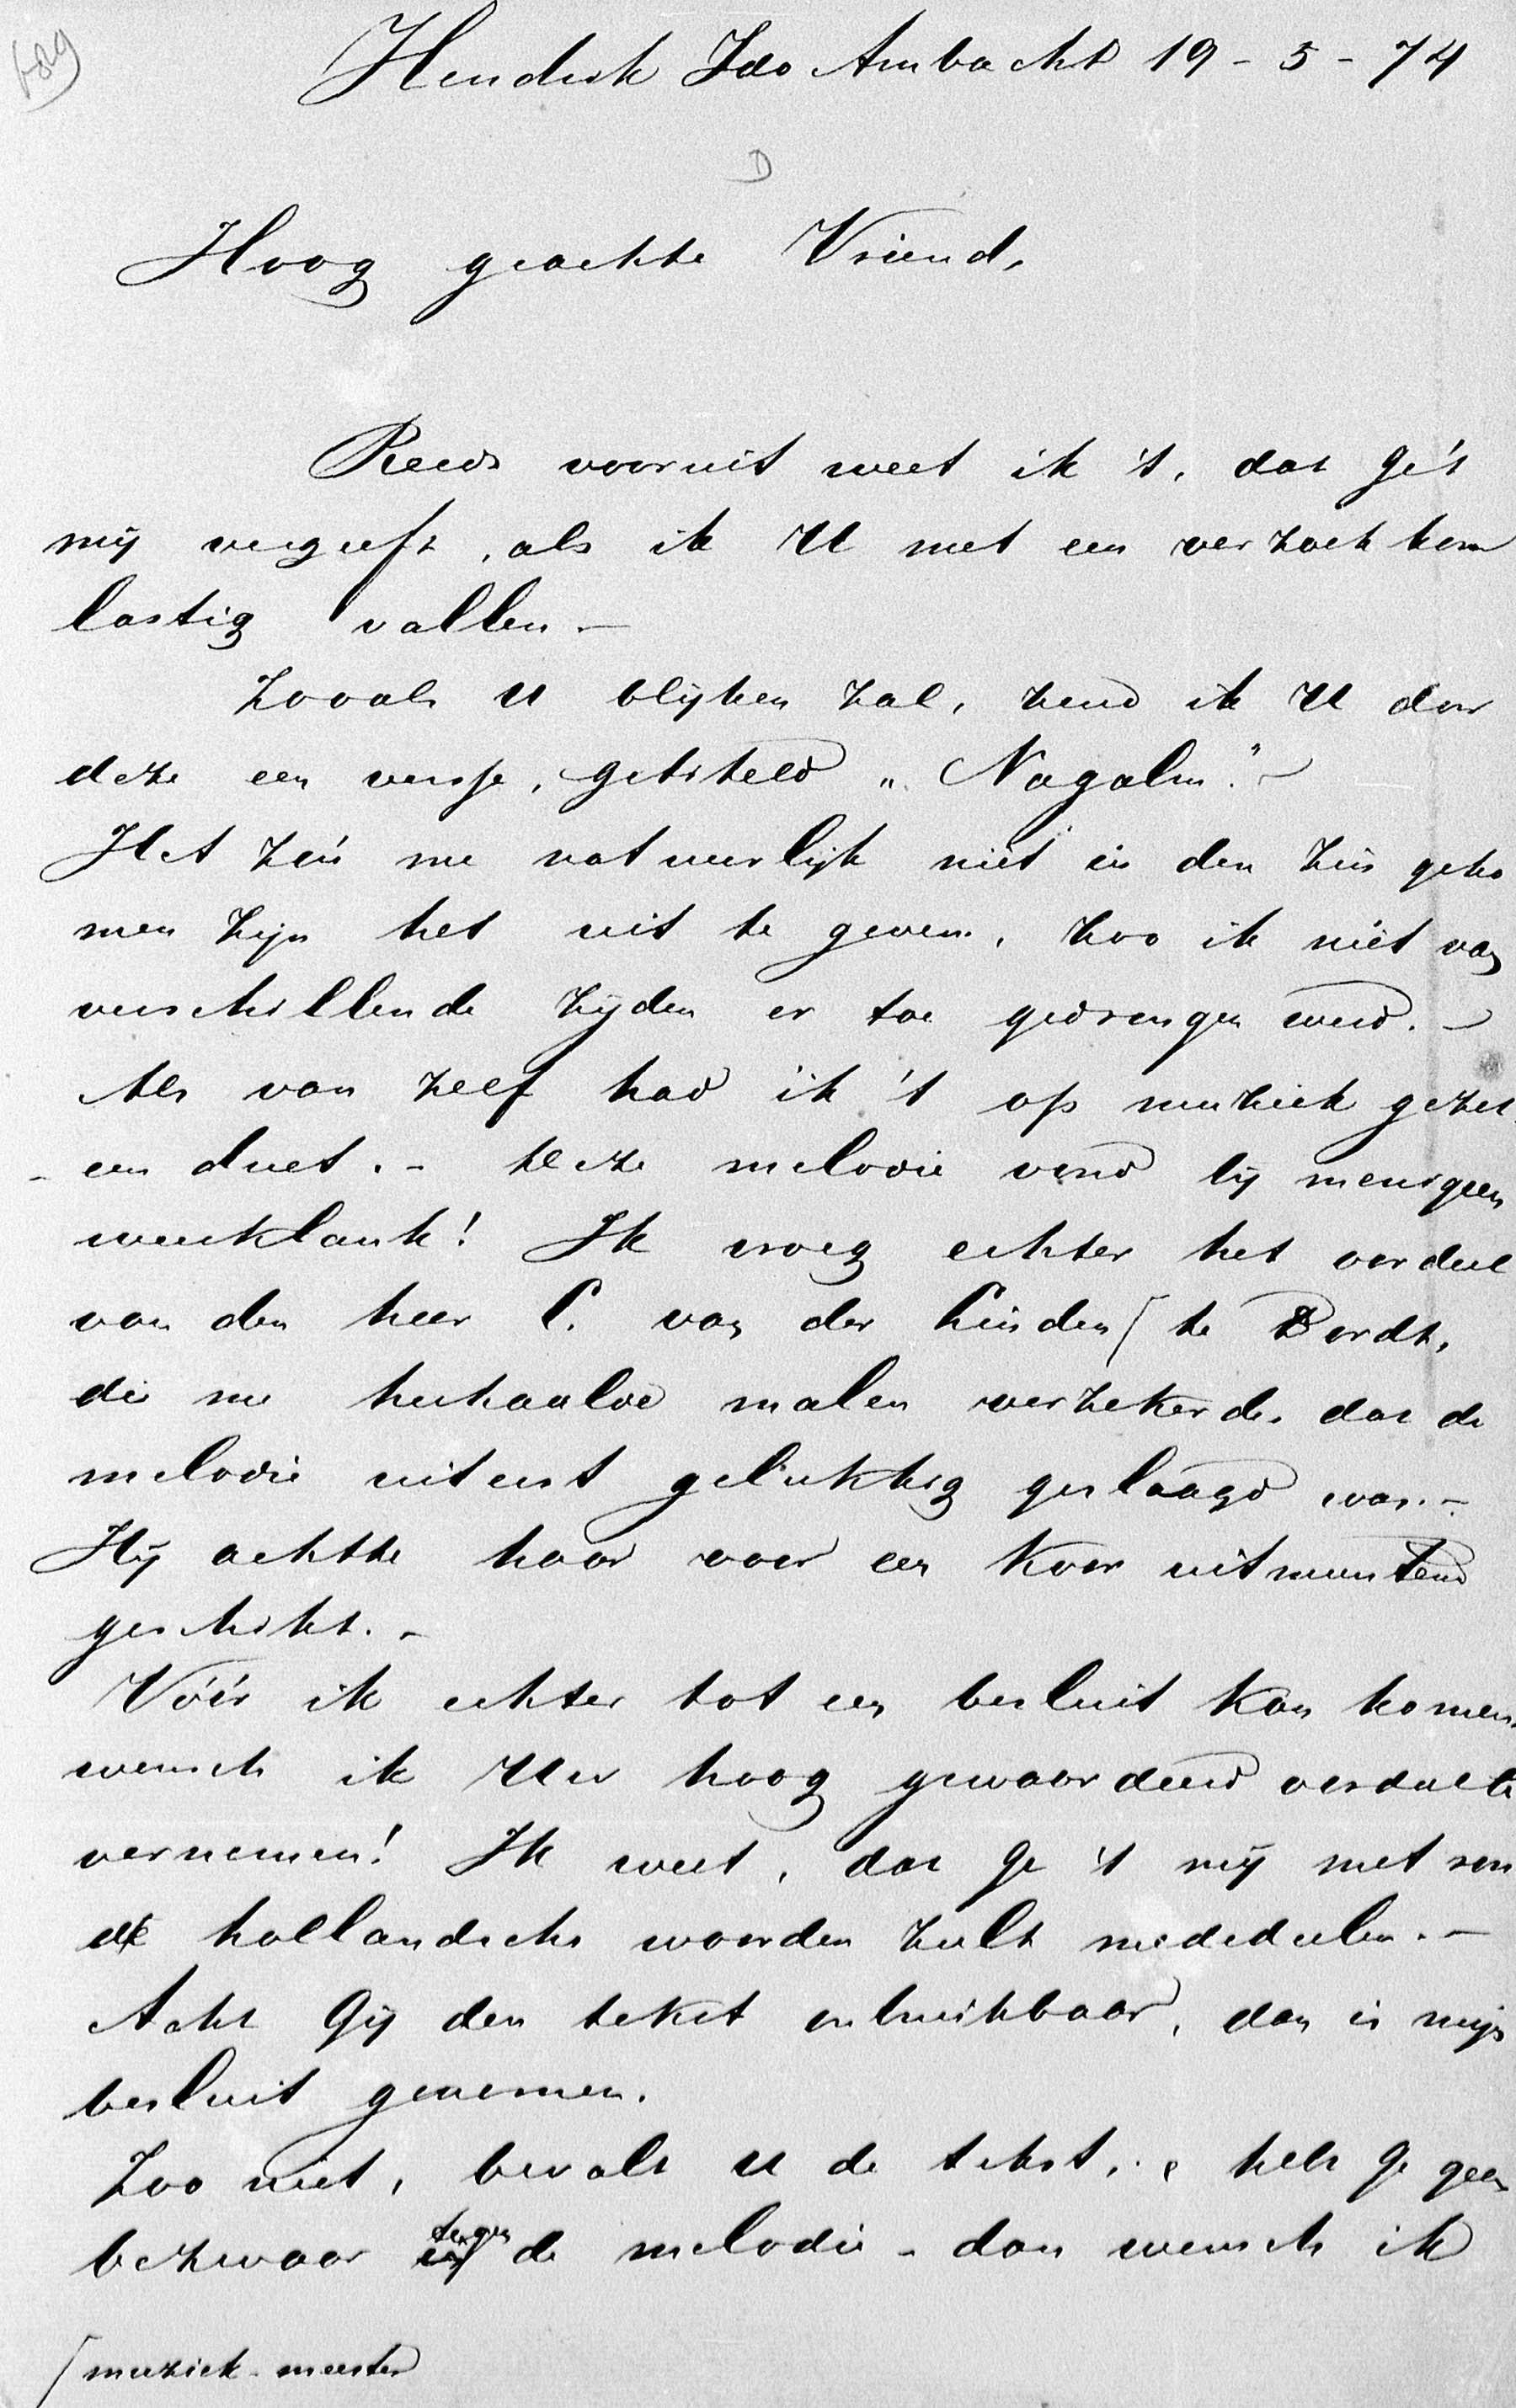 Hendrik Ido Ambacht 19-5-74
Hoog geachte Vriend,
Reeds vooruit weet ik 't, dat ge 't
mij vergeeft, als ik U met een verzoek kom
lastig vallen. -
Zooals U blijken zal, zend ik U door
deze een versje, getiteld „Nagalm". -
Het zou me natuurlijk niet in den zin geko
men zijn het uit te geven, zoo ik niet van
verschillende zijden er toe gedrongen werd. -
Als van zelf had ik 't op muziek gezet
- een duet. - Deze melodie vond bij menigeen
weerklank! Ik vroeg echter het oordeel
van den heer C. van der Linden ⌠ te Dordt,
die me herhaalde malen verzekerde, dat de
melodie uiterst gelukkig geslaagd was. -
Hij achtte haar voor een koor uitmuntend
geschikt. -
Vóór ik echter tot een besluit kan komen,
wensch ik Uw hoog gewaardeerd oordeel te
vernemen! Ik weet, dat ge 't mij met ron
de hollandsche woorden zult mededeelen. -
Acht Gij den tekst onbruikbaar, dan is mijn
besluit genomen.
Zoo niet, bevalt U de tekst, & hebt ge geen
bezwaar tegen de melodie - dan wensch ik
⌠ muziek-meester